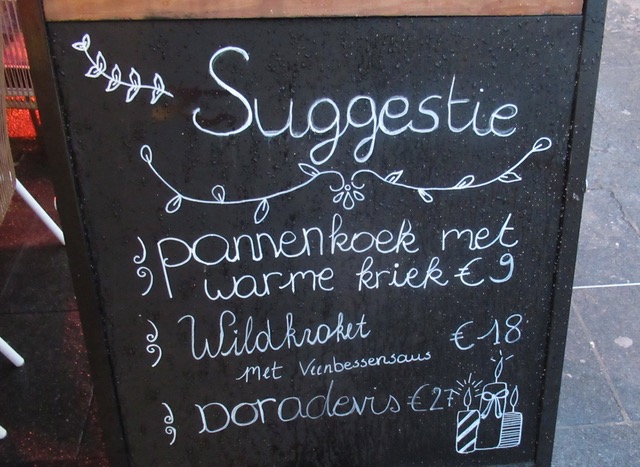 Suggestie
pannenkoek met
warme kriek €9
Wildkroket €18
met Veenbessensaus
Doradevis €27